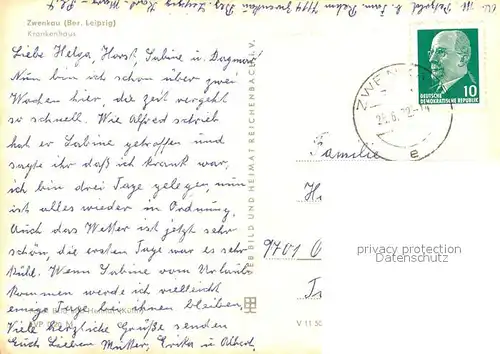 Zwenkau (Bez. Leipzig)
Krankenhaus
Liebe Helga, Horst, Sabine u. Dagmar!
Nun bin ich schon über zwei
Wochen hier, die Zeit vergeht
so schnell. Wie Alfred schrieb
hat er Sabine getroffen und
sagte ihr daß ich krank war,
ich bin drei Tage gelegen, nun
ist alles wieder in Ordnung.
Auch das Wetter ist jetzt sehr
schön, die ersten Tage war es sehr
kühl. Wenn Sabine vom Urlaub
kommen werde ich vielleicht
einige Tage bei ihnen bleiben.
Viele herzliche Grüße senden
Euch Lieben Mutter, Erika u. Albert.
VEB BILD UND HEIMAT REICHENBACH I. V.
ZWENKAU
e
10
DEUTSCHE
DEMOKRATISCHE REPUBLIK
Familie
9701
privacy protection
Datenschutz
V 11 50